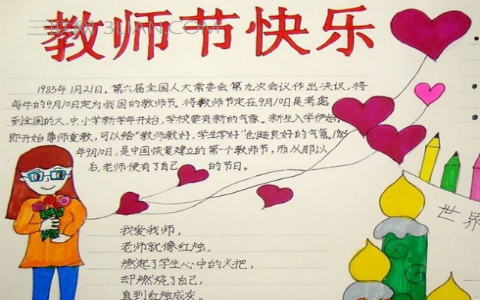 教师节快乐
1985年1月21日,第六届全国人大常委会第九次会议作出决议,将
每年的9月10日定为我国的教师节。将教师节定在9月10日是考虑
到全国的大、中、小学新学年开始,学校要有新的气象。新生入学伊始,
即开始尊师重教,可以给"教师教好,学生学好"创造良好的气氛。1985
年9月10日,是中国恢复建立的第一个教师节,而从那以
后,老师便有了自己的节日。
世界
我爱我师,
老师就像红烛,
燃起了学生心中的火把,
却燃烧了自己,
直到红烛成灰。